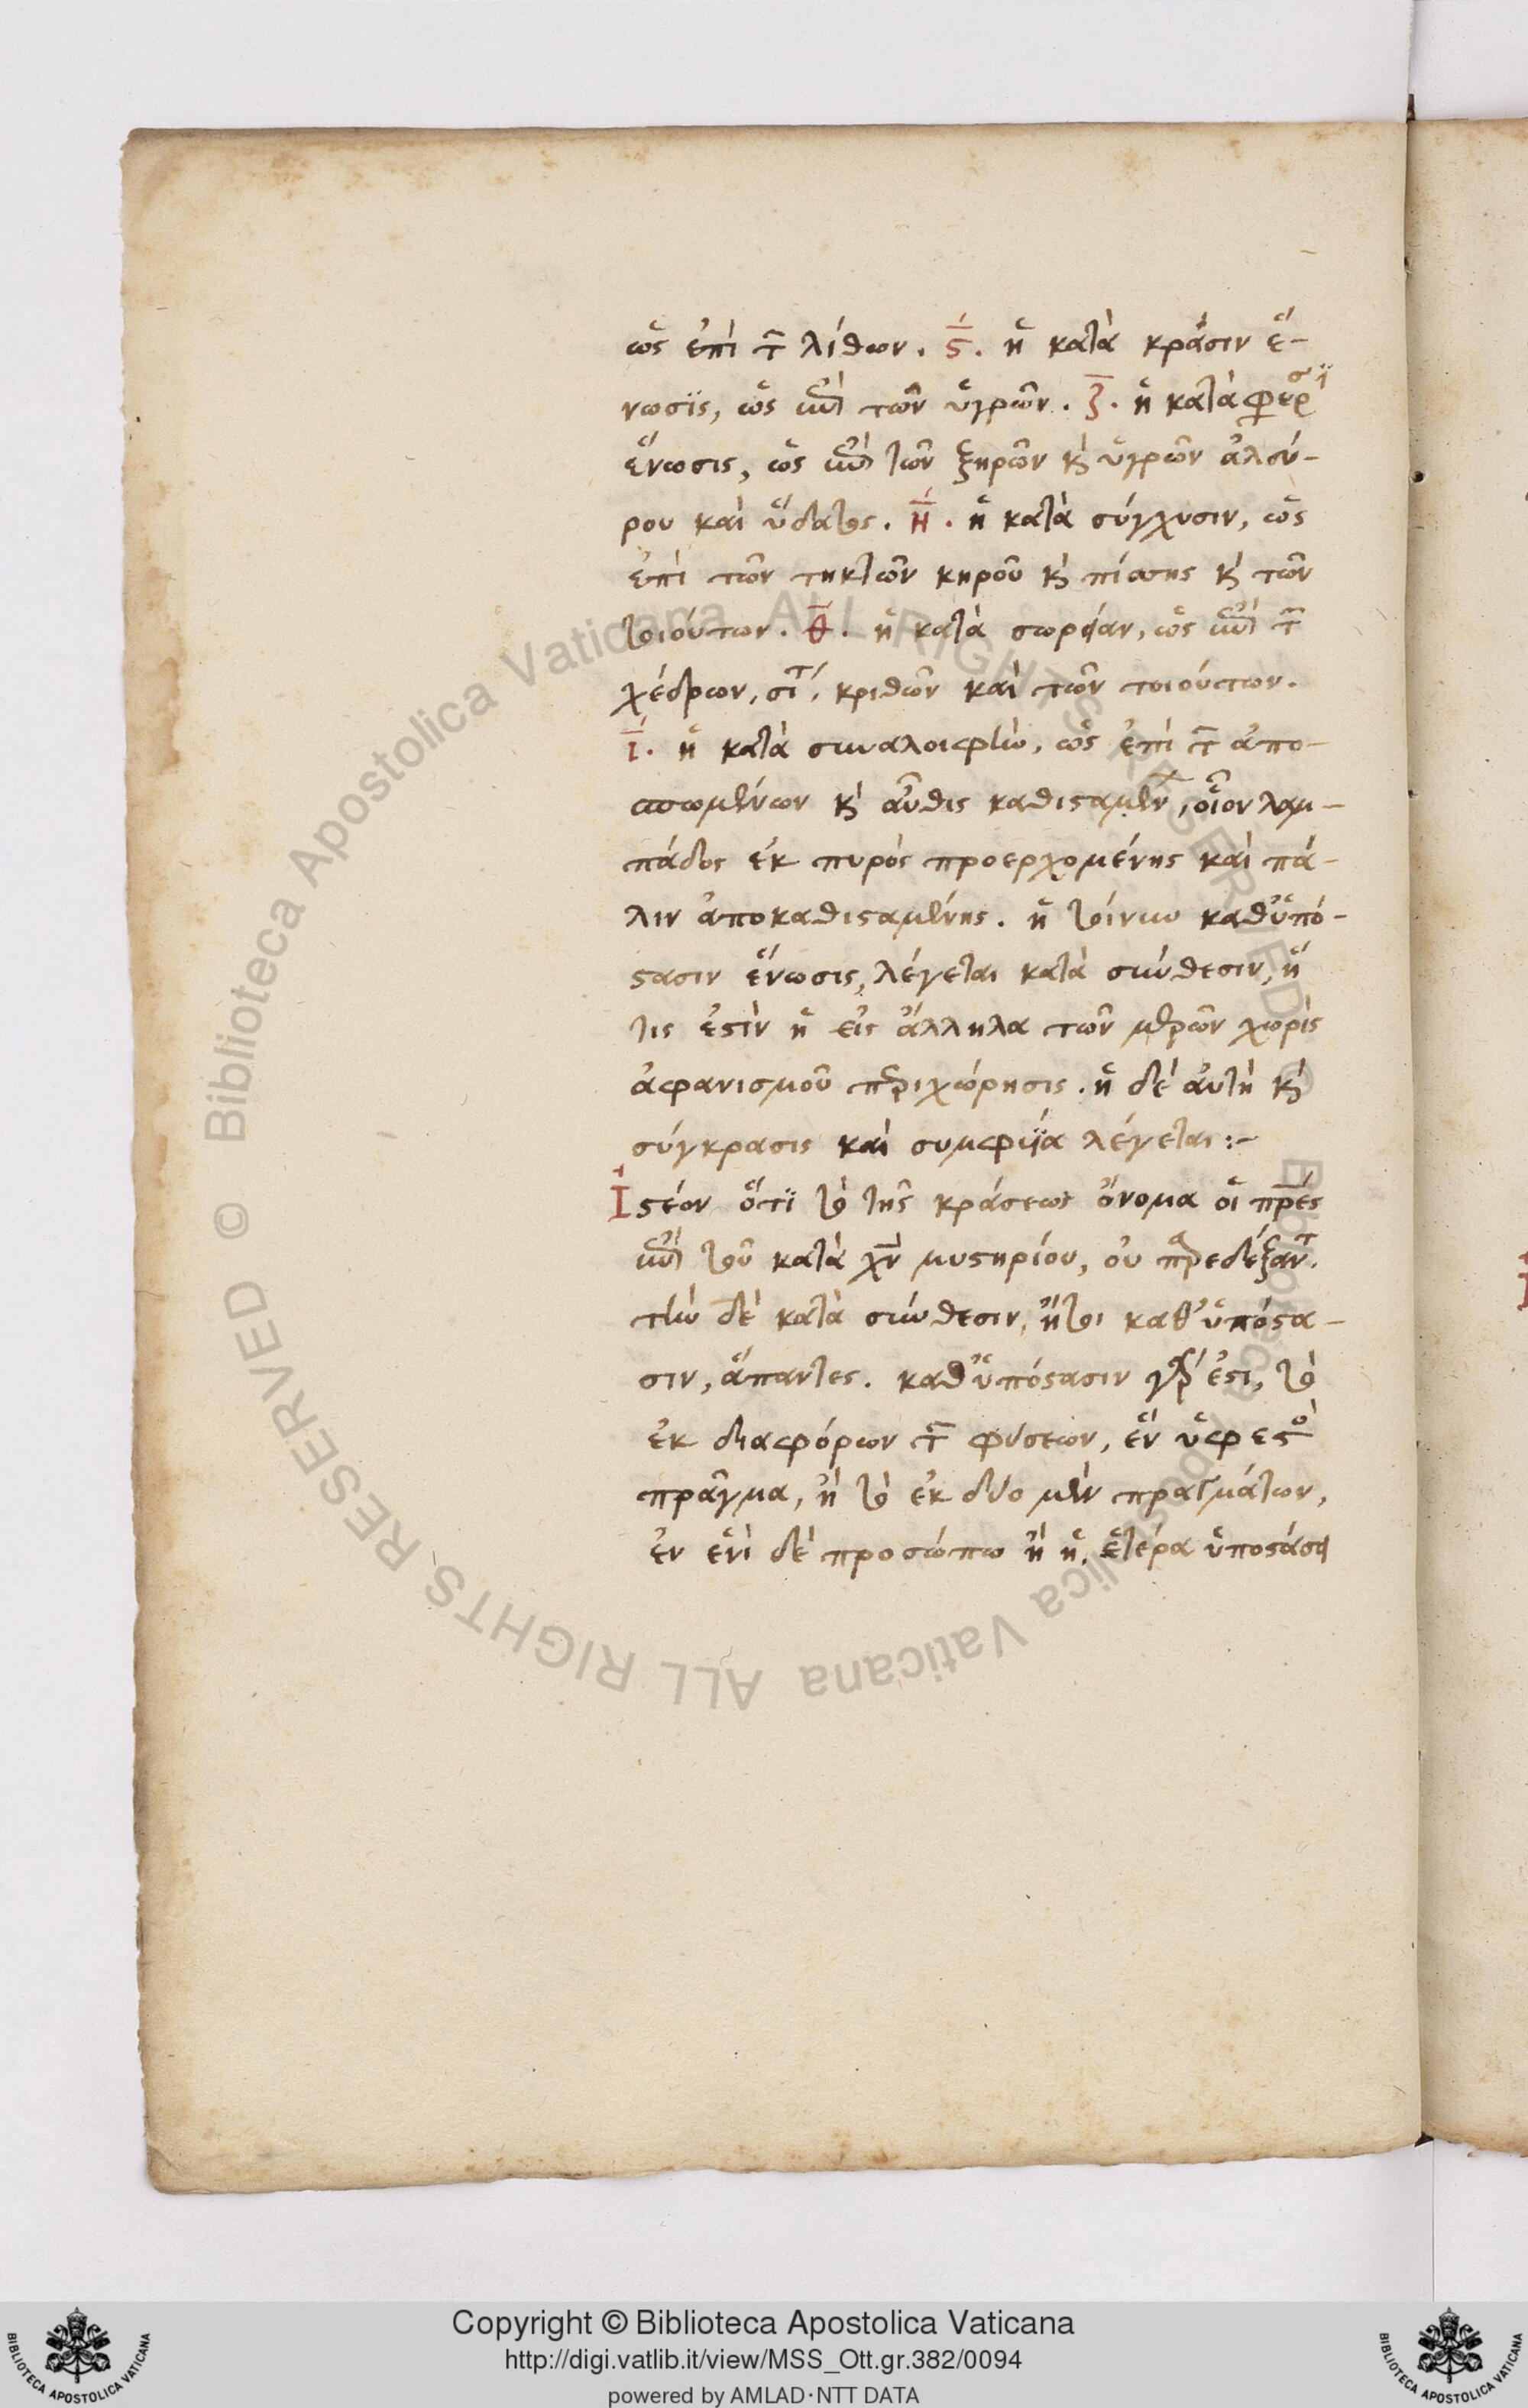 ὡς ἐπὶ τῶν λίθων. ς. ἡ κατὰ κράσιν ἕ-
νωσϊς, ὡς ἐπὶ τῶν ὑγρῶν. ζ. ἡ κατὰ
ἕνωσις, ὡς ἐπὶ τῶν ξηρῶν καὶ ὑγρῶν ἀλεύ-
ρου καὶ ὕδατος. η. ἡ κατὰ σύγχυσιν, ὡς
ἐπὶ τῶν τηκτῶν κηροῦ καὶ πίσσης καὶ τῶν
τοιούτων. θ. ἡ κατὰ σωρείαν, ὡς ἐπὶ τῶν
χέδρων, σίτ, κριθῶν καὶ τῶν τοιούτων.
ι. ἡ κατὰ συναλοιφὴν, ὡς ἐπὶ τῶν ἀπο-
σπωμένων καὶ αὖθις καθισταμένων, οἷον λαμ-
πάδος ἐκ πυρὸς προερχομένης καὶ πά-
λιν ἀποκαθισταμένης. ἡ τοίνυν καθ' ὑπό-
στασιν ἕνωσις, λέγεται κατὰ σύνθεσιν, ἥ
τις ἐστὶν ἡ εἰς ἄλληλα τῶν μερῶν χωρὶς
ἀφανισμοῦ περιχώρησις. ἡ δὲ αὐτὴ καὶ
σύγκρασις καὶ συμφυΐα λέγεται :-
Ἰστέον ὅτϊ τὸ τῆς κράσεως ὄνομα οἱ πρές
ἐπὶ τοῦ κατὰ χν μυστηρίου, οὐ παρεδέξαντ.
τὴν δὲ κατὰ σύνθεσιν, ἤτοι καθ' ὑπόστα-
σιν, ἅπαντες. καθ' ὑπόστασιν γάρ ἐστι, τὸ
ἐκ διαφόρων τῶν φύσεων, ἓν ὑφεστὸς
πρᾶγμα, ἢ τὸ ἐκ δύο μὲν πραγμάτων,
ἐν ἑνὶ δὲ προσώπω ἢ ἡ ἑτέρα ὑποστάσει
Copyright © Biblioteca Apostolica Vaticana
http://digi.vatlib.it/view/MSS_Ott.gr.382/0094
powered by AMLAD·NTT DATA